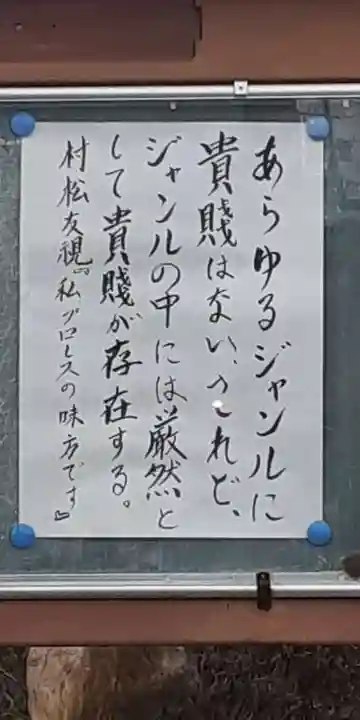 あらゆるジャンルに
貴賎はない、けれど、
ジャンルの中には厳然と
して貴賎が存在する。
村松友視『私、プロレスの味方です』